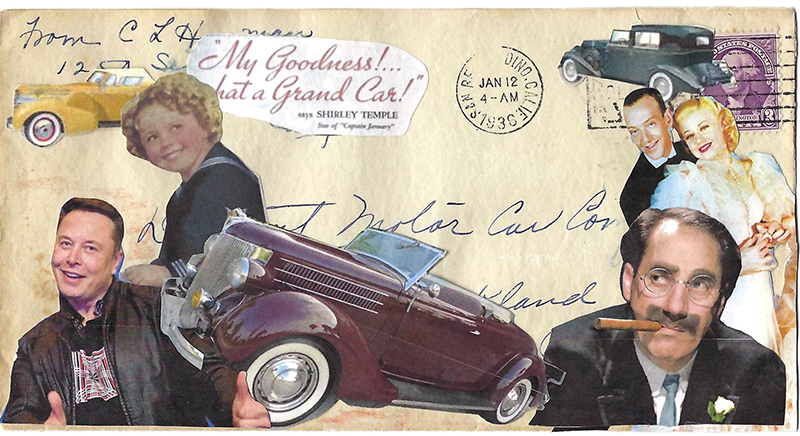 From C L H
12
"My Goodness!...
hat a Grand Car!"
says SHIRLEY TEMPLE
Star of "Captain January"
DINO, CALIF.
JAN 12
4-AM
1936
STATES POSTAGE
3
Motor Car Com
kland